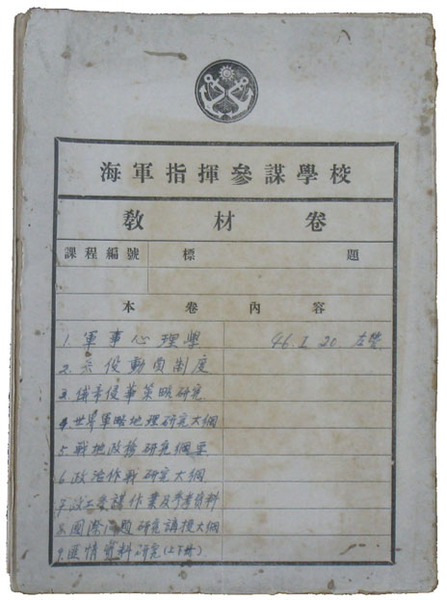 海軍指揮參謀學校
教材卷
課程編號 標題
本卷內容
1. 軍事心理學 46. 1. 20 左營
2. 兵役動員制度
3. 俄帝侵華策略研究
4. 世界軍略地理研究大綱
5. 戰地政務研究綱要
6. 政治作戰研究大綱
7. 政工參謀作業及參考資料
8. 國際 研究講授大綱
9. 匪情資料研究(上下冊)